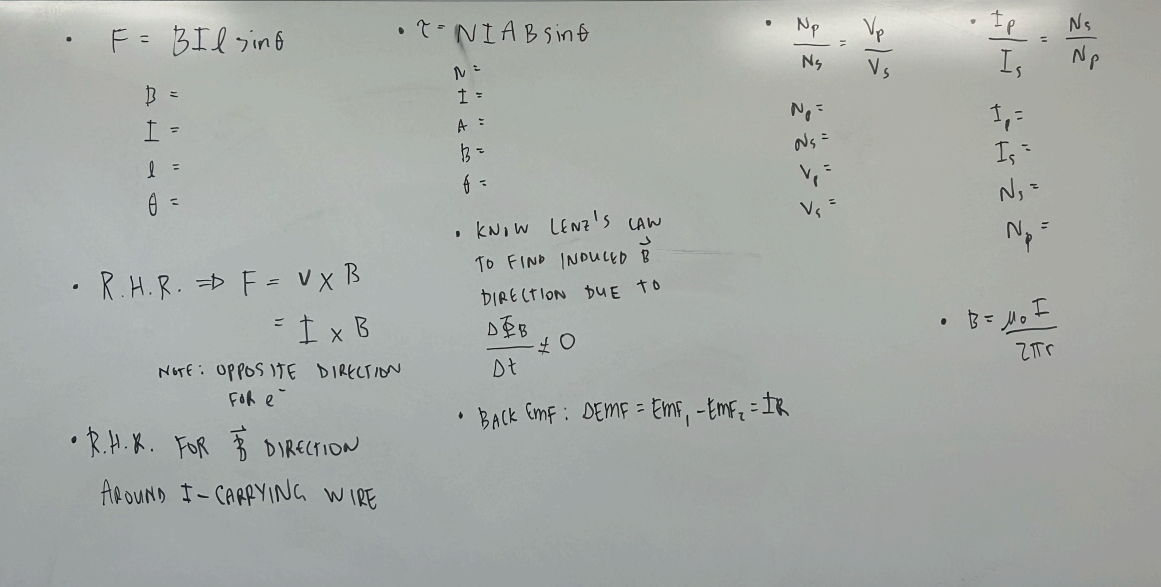 • F = BIl sinθ
B =
I =
l =
θ =
• R.H.R. ⇒ F = V X B
= I X B
NOTE: OPPOSITE DIRECTION
FOR e⁻
• R.H.R. FOR B⃗ DIRECTION
AROUND I-CARRYING WIRE
• τ = NIAB sinθ
N =
I =
A =
B =
θ =
• KNOW LENZ'S LAW
TO FIND INDUCED B⃗
DIRECTION DUE TO
ΔΦB/Δt ≠ 0
• BACK EMF: ΔEMF = EMF₁ - EMF₂ = IR
• Np/Ns = Vp/Vs
Np =
Ns =
Vp =
Vs =
• Ip/Is = Ns/Np
Ip =
Is =
Ns =
Np =
• B = μ₀I/2πr